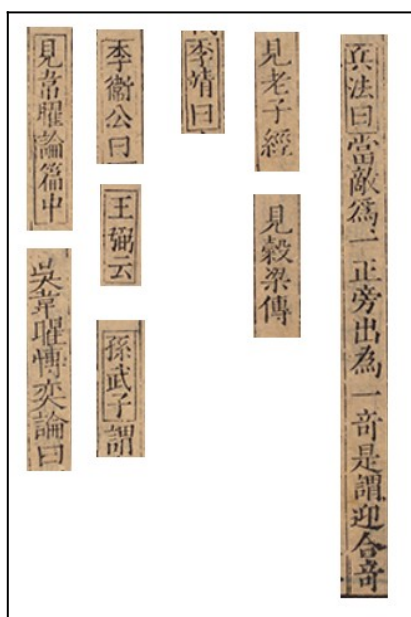 兵法曰當敵爲一正旁出爲一竒是謂迎合竒
見老子經
見穀梁傳
李靖曰
李衞公曰
王弼云
孫武子謂
見韋曜論篇中
吳韋曜愽奕論曰